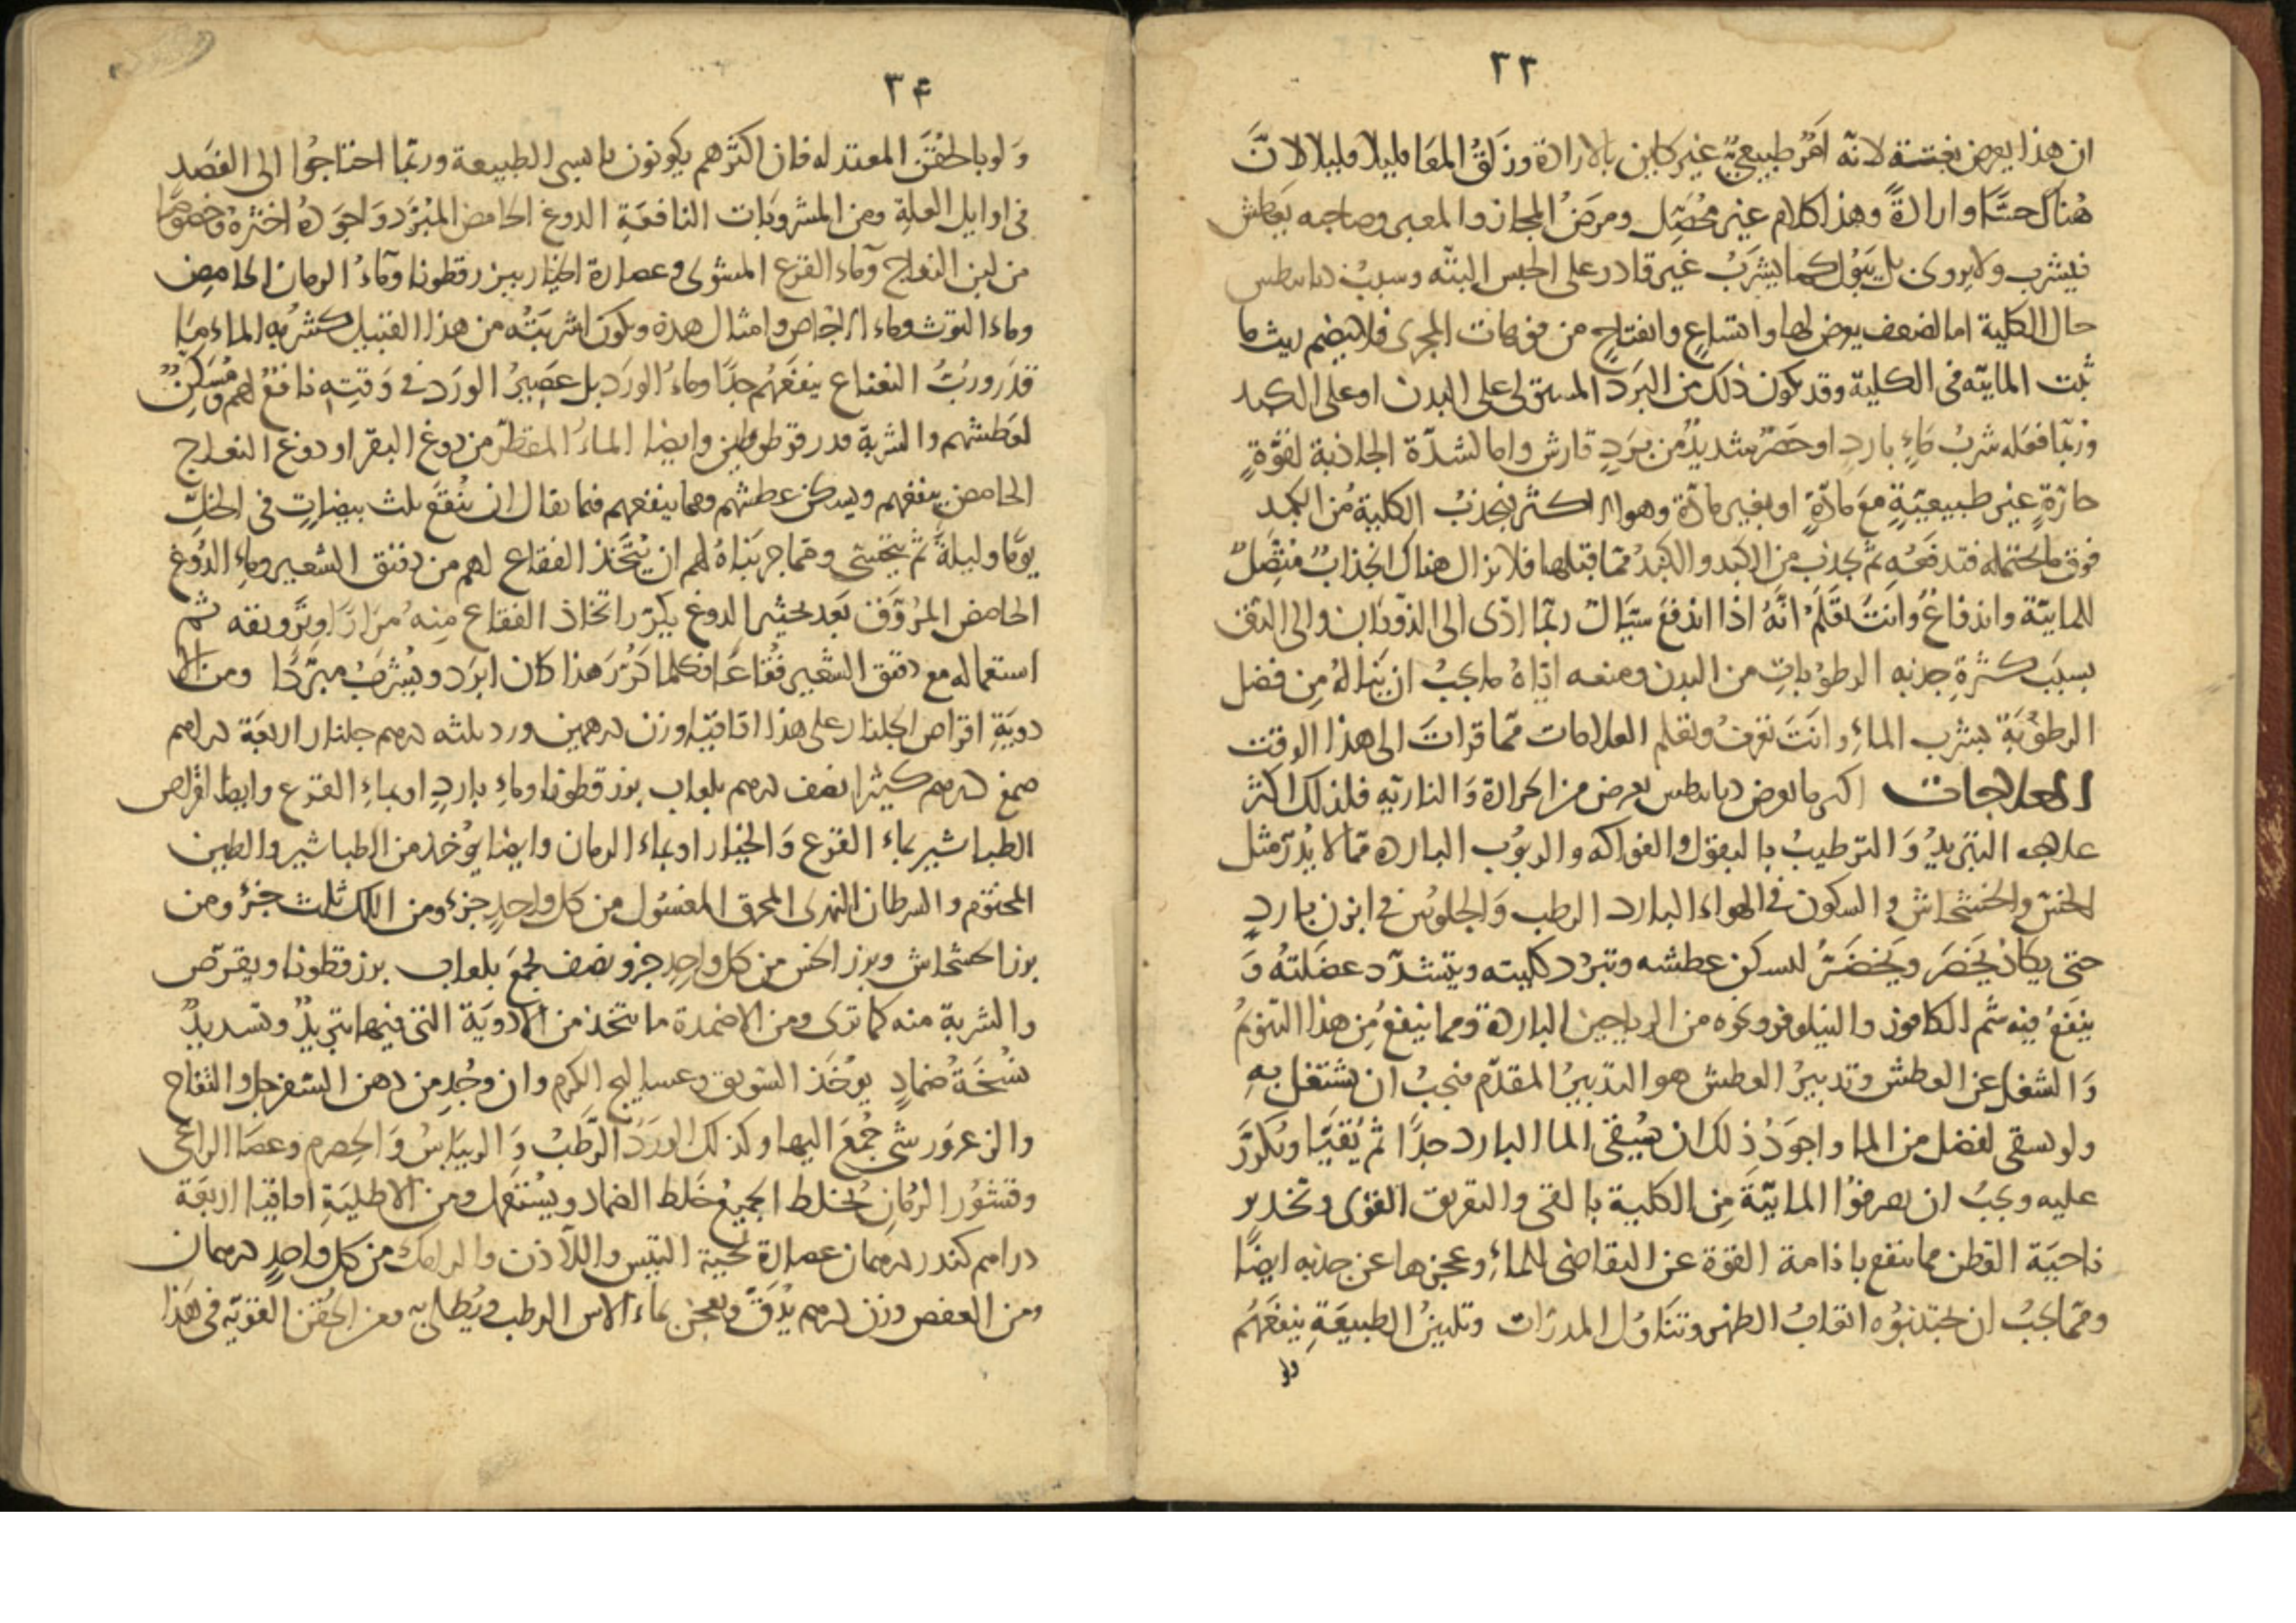 ٣٣
ان هذا يعرض بغتة لانه امر طبيعي غير كاين بالارادة وزلق المعا قليلا قليلا لان
هناك حسا وارادة وهذا كلام غير محصل ومرض المجاز والمعبر وصاحبه يعطش
فيشرب ولا يروى بل يبول كما يشرب غير قادر على الحبس البته وسبب ديابيطس
حال الكلية اما لضعف يعرض لها واتساع وانفتاح من فوهات المجرى فلا ينضم ريث ما
تلبث المايية فى الكلية وقد يكون ذلك من البرد المستولى على البدن او على الكبد
وربما فعله شرب ماء بارد او حصر شديد من برد قارش واما لشدة الجاذبة لقوة
حارة غير طبيعية مع مادة او بغير مادة وهو الاكثر فيجذب الكلية من الكبد
فوق ما تحتمله فتدفعه ثم تجذب من الكبد والكبد مما قبلها فلا يزال هناك انجذاب متصل
للمايية واندفاع وانت تعلم انه اذا اندفع سيال ربما ادى الى الذوبان والى الدق
بسبب كثرة جذبه الرطوبات من البدن ومنعه اياه ما يجب ان يناله من فضل
الرطوبة بشرب الماء وانت تعرف وتعلم العلامات مما قرات الى هذا الوقت
العلاجات اكثر ما يعرض ديابيطس يعرض من الحرارة والنارية فلذلك اكثر
علاجه التبريد والترطيب بالبقول والفواكه والربوب الباردة مما لا يدر مثل
الخس والخشخاش والسكون فى الهواء البارد الرطب والجلوس فى ابزن بارد
حتى يكاد يخصر ويخضر ليسكن عطشه وتبرد كليته ويتشدد عضلته و
ينفع فيه شم الكافور والنيلوفر ونحوه من الرياحين الباردة ومما ينفع من هذا التنويم
والشغل عن العطش وتدبير العطش هو التدبير المقدم فيجب ان يشتغل به
ولو بسقى لفضل من الما واجود ذلك ان يسقى الما البارد جدا ثم يتقيا ويكرر
عليه ويجب ان يصرفوا المايية من الكلية بالقى والتعريق القوى وتخدير
ناحية القطن مما ينفع بانامة القوة عن التقاضى للماء وعجزها عن جذبه ايضا
ومما يجب ان يجتنبوه اتعاب الظهر وتناول المدرات وتليين الطبيعة ينفعهم
ولو
٣۴
ولو بالحقن المعتدله فان اكثرهم يكونون يابسى الطبيعة وربما احتاجوا الى الفصد
فى اوايل العلة ومن المشروبات النافعة الدوغ الحامض المبرد واجوده اخثره وخصوصا
من لبن النعاج وماء القرع المشوى وعصارة الخيار ببزرقطونا وماء الرمان الحامض
وماء التوث وماء الاجاص وامثال هذه ويكون اشربته من هذا القبيل كشربه الماء ما
قدر ورب النعناع ينفعهم جدا وماء الورد بل عصير الورد فى وقته نافع لهم ومسكن
لعطشهم والشربة قدر قوطولين وايضا الماء المقطر من دوغ البقر او دوغ النعاج
الحامض ينفعهم ويسكن عطشهم ومما ينفعهم فيما يقال ان ينقع ثلث بيضات فى الخل
يوما وليلة ثم يتحسى ومما جربناه لهم ان يتخذ الفقاع لهم من دقيق الشعير وماء الدوغ
الحامض المروق بعد تخثير الدوغ يكرر اتخاذ الفقاع منه مرارا وترويقه ثم
استعماله مع دقيق الشعير فقاعا فكلما كرر هذا كان ابرد ويشرب مبردا ومن الا
دوية اقراص الجلنار على هذا اقاقيا وزن درهمين ورد ثلثه درهم جلنار اربعة دراهم
صمغ درهم كثيرا نصف درهم بلعاب بزرقطونا وماء بارد او بماء القرع وايضا اقراص
الطباشير بماء القرع والخيار او بماء الرمان وايضا يؤخذ من الطباشير والطين
المختوم والسرطان النهرى المحرق المغسول من كل واحد جزء ومن اللك ثلث جزء ومن
بزر الخشخاش وبزر الخس من كل واحد جزء ونصف يجمع بلعاب بزرقطونا ويقرص
والشربة منه كما ترى ومن الاضمدة ما يتخذ من الادوية التى فيها تبريد وتشديد
نسخة ضماد يؤخذ السويق وعساليج الكرم وان وجد من دهن السفرجل والتفاح
والزعرور شى جمع اليها وكذلك الورد الرطب والريباس والحصرم وعصا الراعى
وقشور الرمان يخلط الجميع خلط الضماد ويستعمل ومن الاطلية اقاقيا اربعة
دراهم كندر درهمان عصارة لحية التيس واللاذن والرامك من كل واحد درهمان
ومن العفص وزن درهم يدق ويعجن بماء الاس الرطب ويطلى به ومن الحقن القوية فى هذا